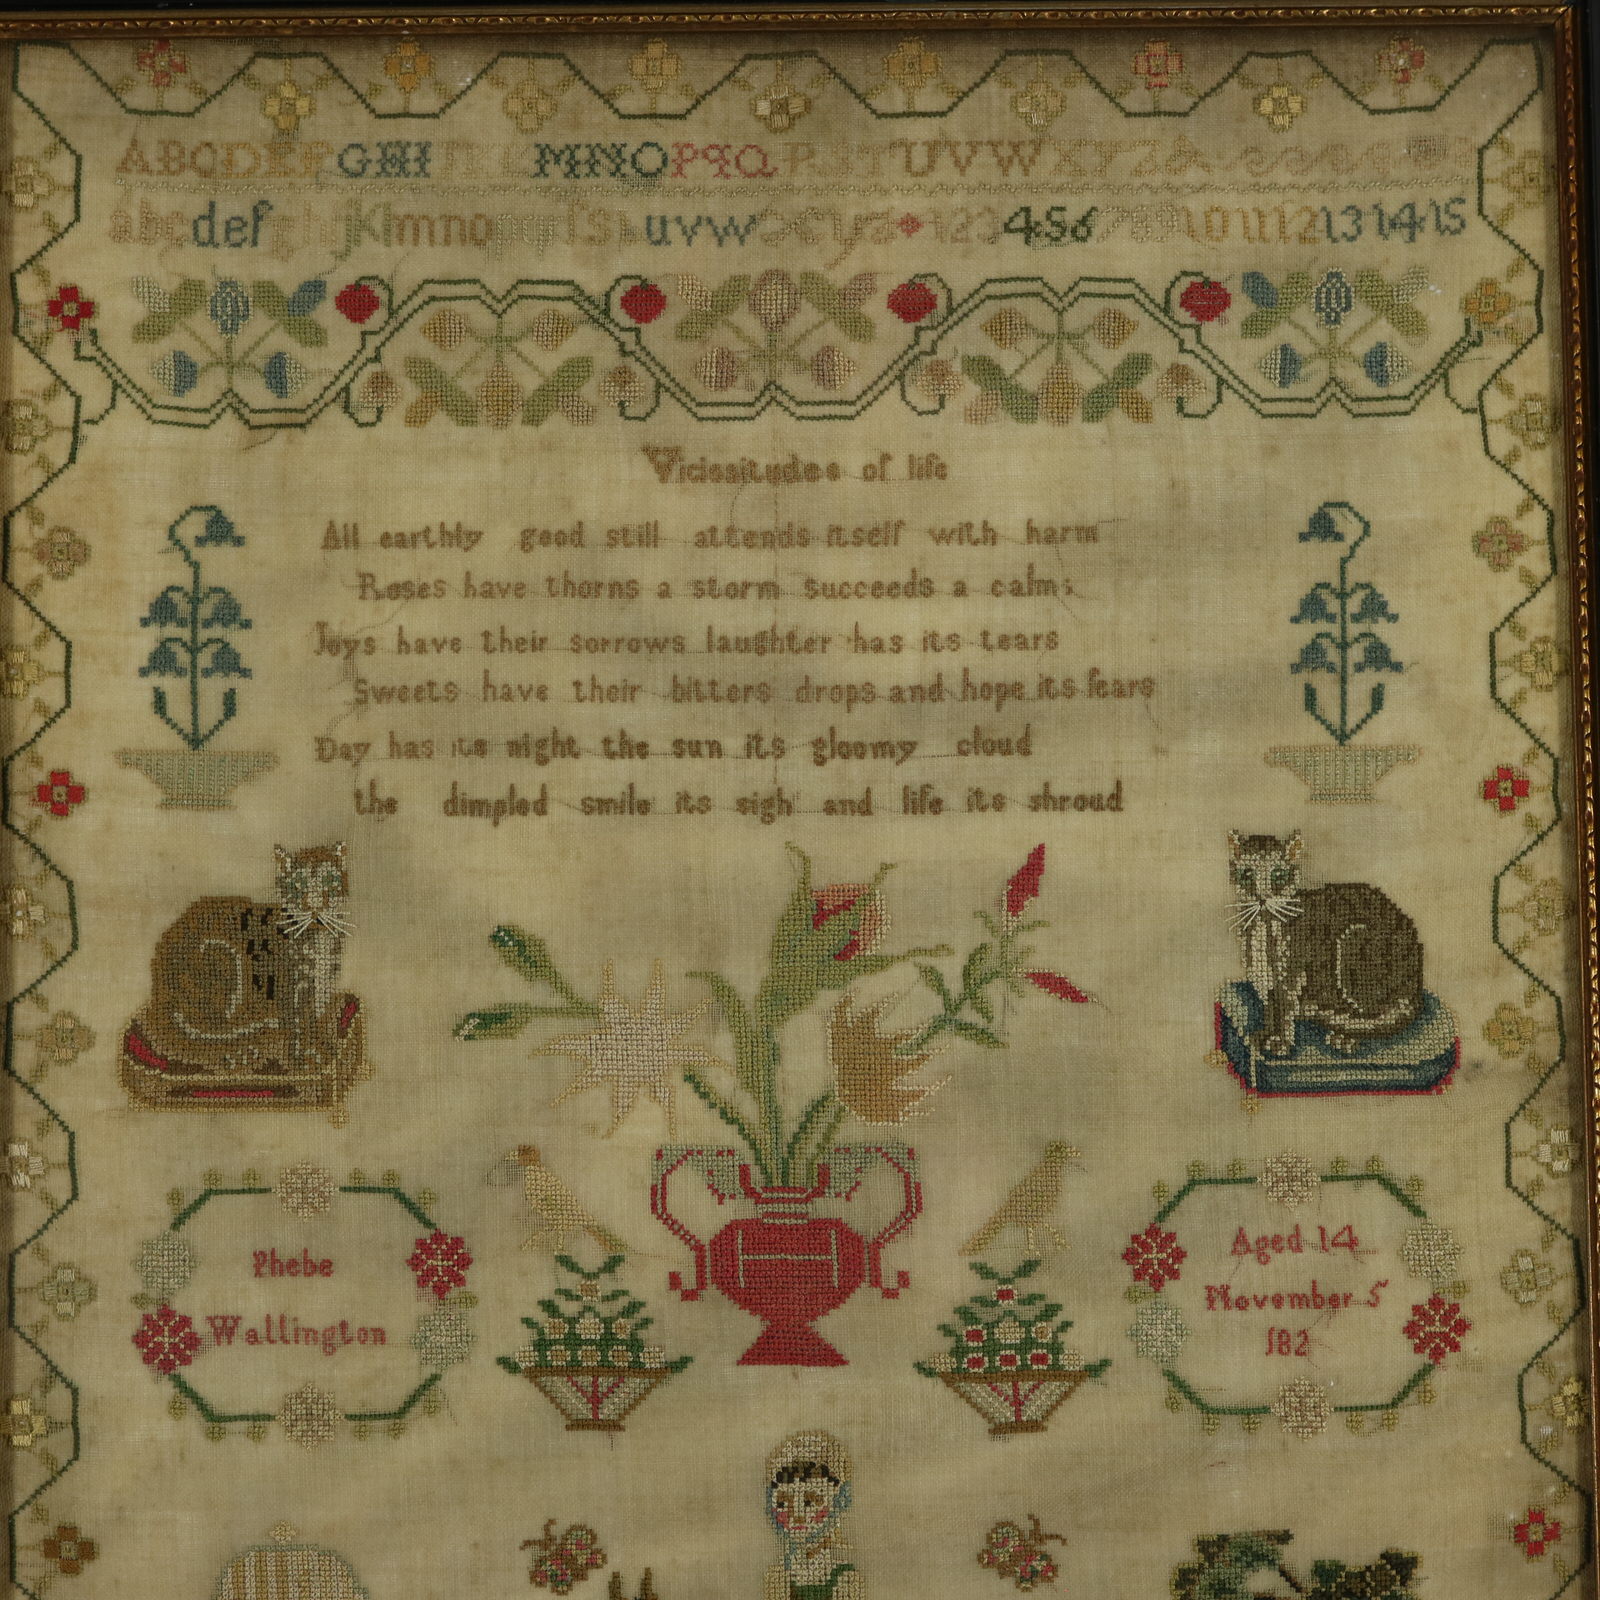 ABCDEFGHI MNOPQQ RSTUVWXYZ&
abcdef ghijklmnopqr uvw xyz 123456789101112131415
Vicissitudes of life
All earthly good still attends itself with harm
Roses have thorns a storm succeeds a calm:
Joys have their sorrows laughter has its tears
Sweets have their bitters drops and hope its fears
Day has its night the sun its gloomy cloud
the dimpled smile its sigh and life its shroud
Phebe
Wallington
Aged 14
November 5
182